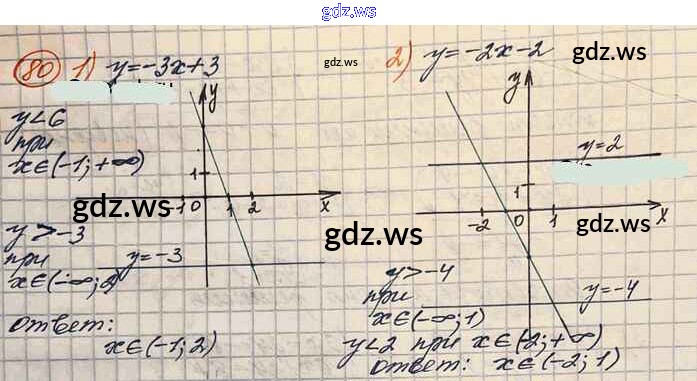 gdz.ws
80 1) y=-3x+3
gdz.ws
y<6
при
x∈(-1;+∞)
y
1
-1 0 1 2 x
gdz.ws
y>-3
при y=-3
x∈(-∞;2)
ответ:
x∈(-1;2)
gdz.ws
2) y=-2x-2
gdz.ws
y
y=2
1
-2 0 1 x
gdz.ws
y>-4
при y=-4
x∈(-∞;1)
y<2 при x∈(-2;+∞)
ответ: x∈(-2;1)
gdz.ws